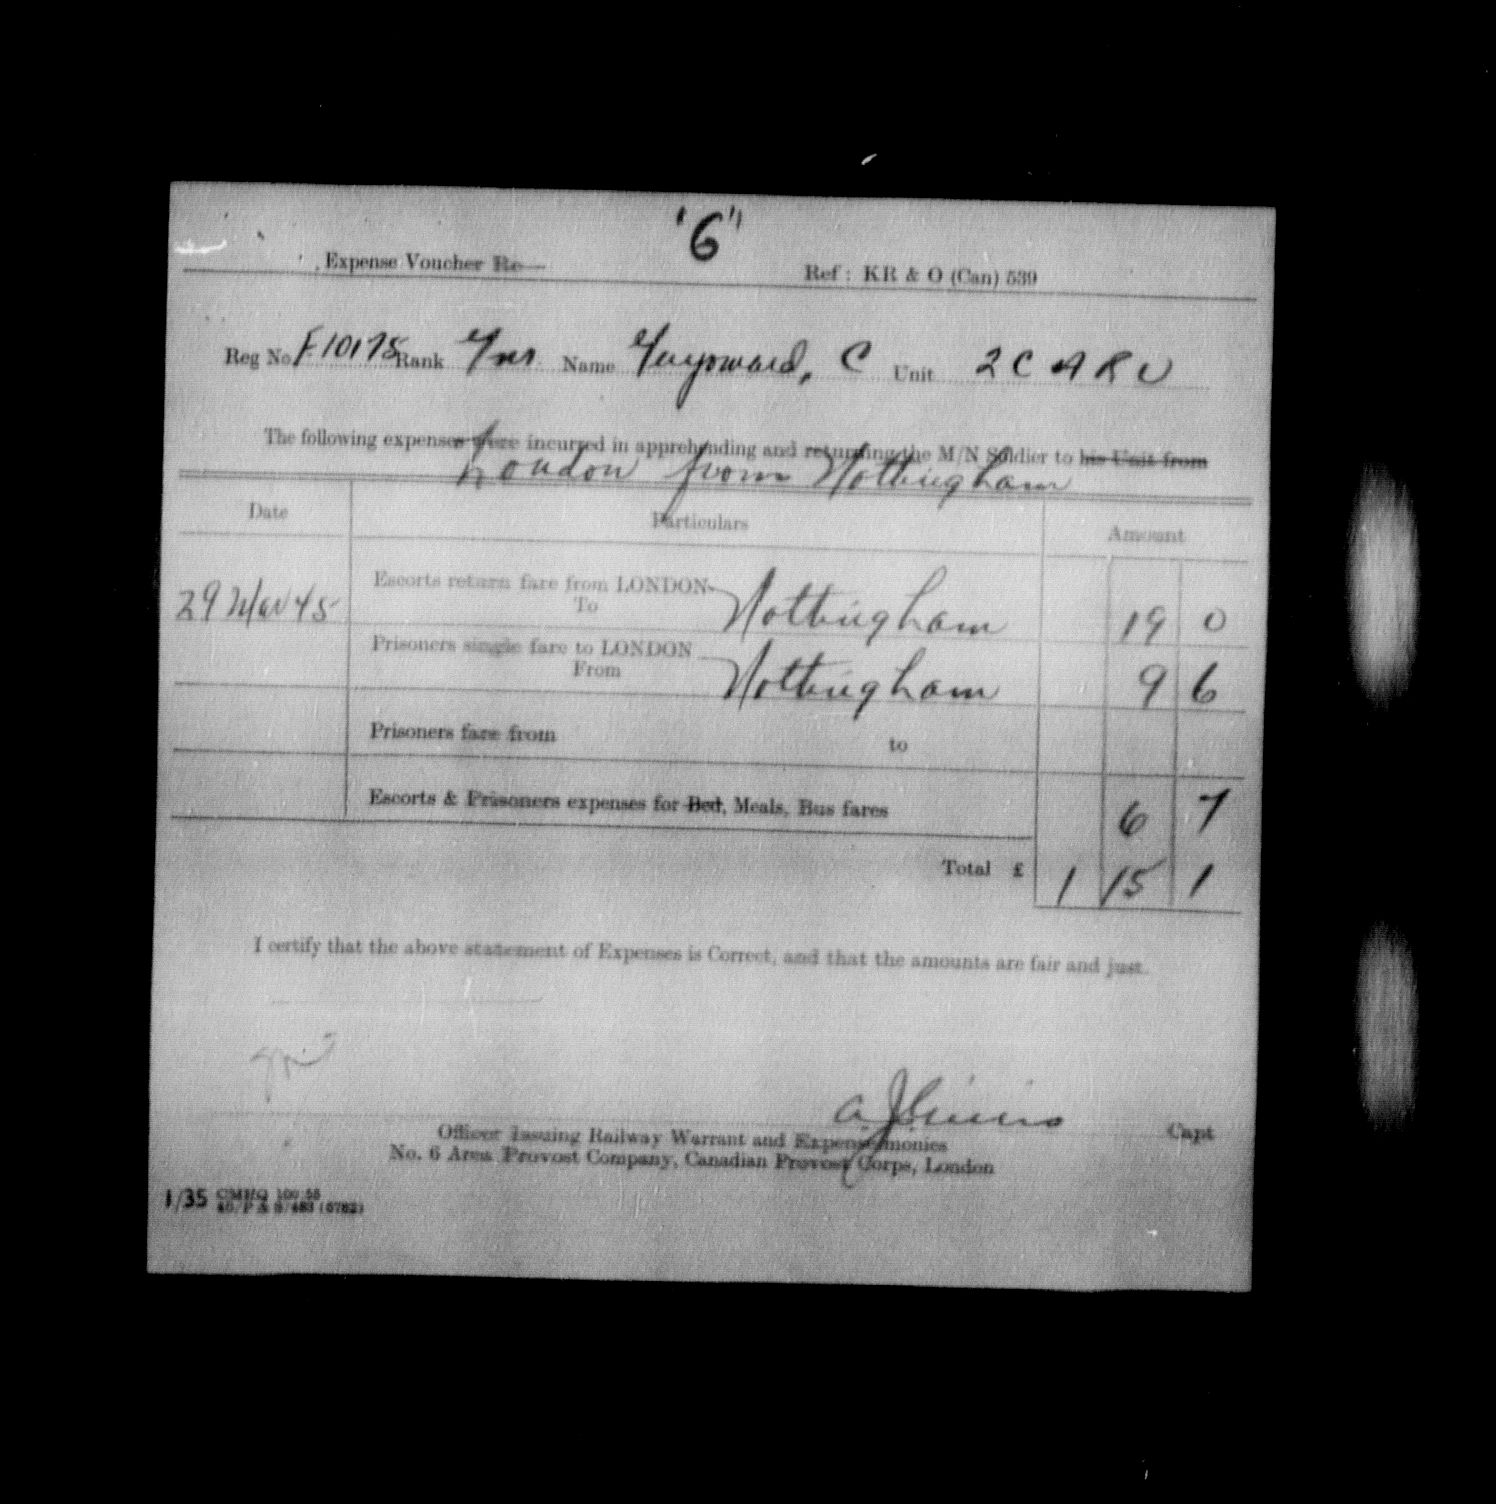 '6'
Expense Voucher Re—
Ref: KR & O (Can) 539
Reg No. F10175 Rank Gnr Name C Unit 2 C A R U
The following expenses were incurred in apprehending and returning the M/N Soldier to his Unit from
London from Nottingham
Date Particulars Amount
29 Mar 45 Escorts return fare from LONDON
To Nottingham 19 0
Prisoners single fare to LONDON
From Nottingham 9 6
Prisoners fare from to
Escorts & Prisoners expenses for Bed, Meals, Bus fares 6 7
Total £ 1 15 1
I certify that the above statement of Expenses is Correct, and that the amounts are fair and just.
Capt
Officer Issuing Railway Warrant and Expense monies
No. 6 Area Provost Company, Canadian Provost Corps, London
1/35 CMHQ